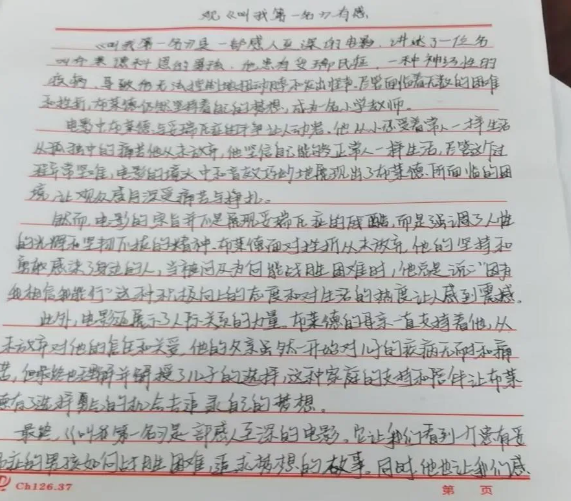 观《叫我第一名》有感
《叫我第一名》是一部感人至深的电影,讲述了一位名
叫布莱德科恩的男孩,他患有妥瑞氏症,一种神经性的
疾病,导致他无法控制地扭动脖子发出怪声,尽管面临着无数的困难
和挫折,布莱德依然坚持着自己的梦想,成为一名小学教师。
电影中布莱德与妥瑞氏症的斗争让人动容,他从小忍受着常人一样生活
的痛苦他从未放弃,他坚信自己能够正常人一样生活,尽管这个过
程异常坚难,电影的镜头中和音效巧妙地展现出了布莱德所面临的困
境,让观众感同深受痛苦与挣扎。
然而,电影的宗旨并不是展现妥瑞氏症的残酷,而是强调了人性
的光辉和坚韧不拔的精神,布莱德面对挫折从未放弃,他的坚持和
感染了身边的人,当被问及为何能战胜困难时,他总是说:"因为
我相信我能行"这种积极向上的态度和对生活的热度让人感到震撼。
此外,电影还展示了人际关系的力量。布莱德的母亲一直支持着他,从
未放弃对他的信任和关爱。他的父亲虽然一开始对儿子的疾病无耐和痛
苦,但最终也理解并接受了儿子的选择,这种家庭的支持和陪伴让布莱
德有了选择的机会去追求自己的梦想。
最总,《叫我第一名》是部感人至深的电影。它让我们看到一个患有妥
氏症的男孩如何战胜困难,追求梦想的故事。同时,他也让我们感
Ch126.37
第 页